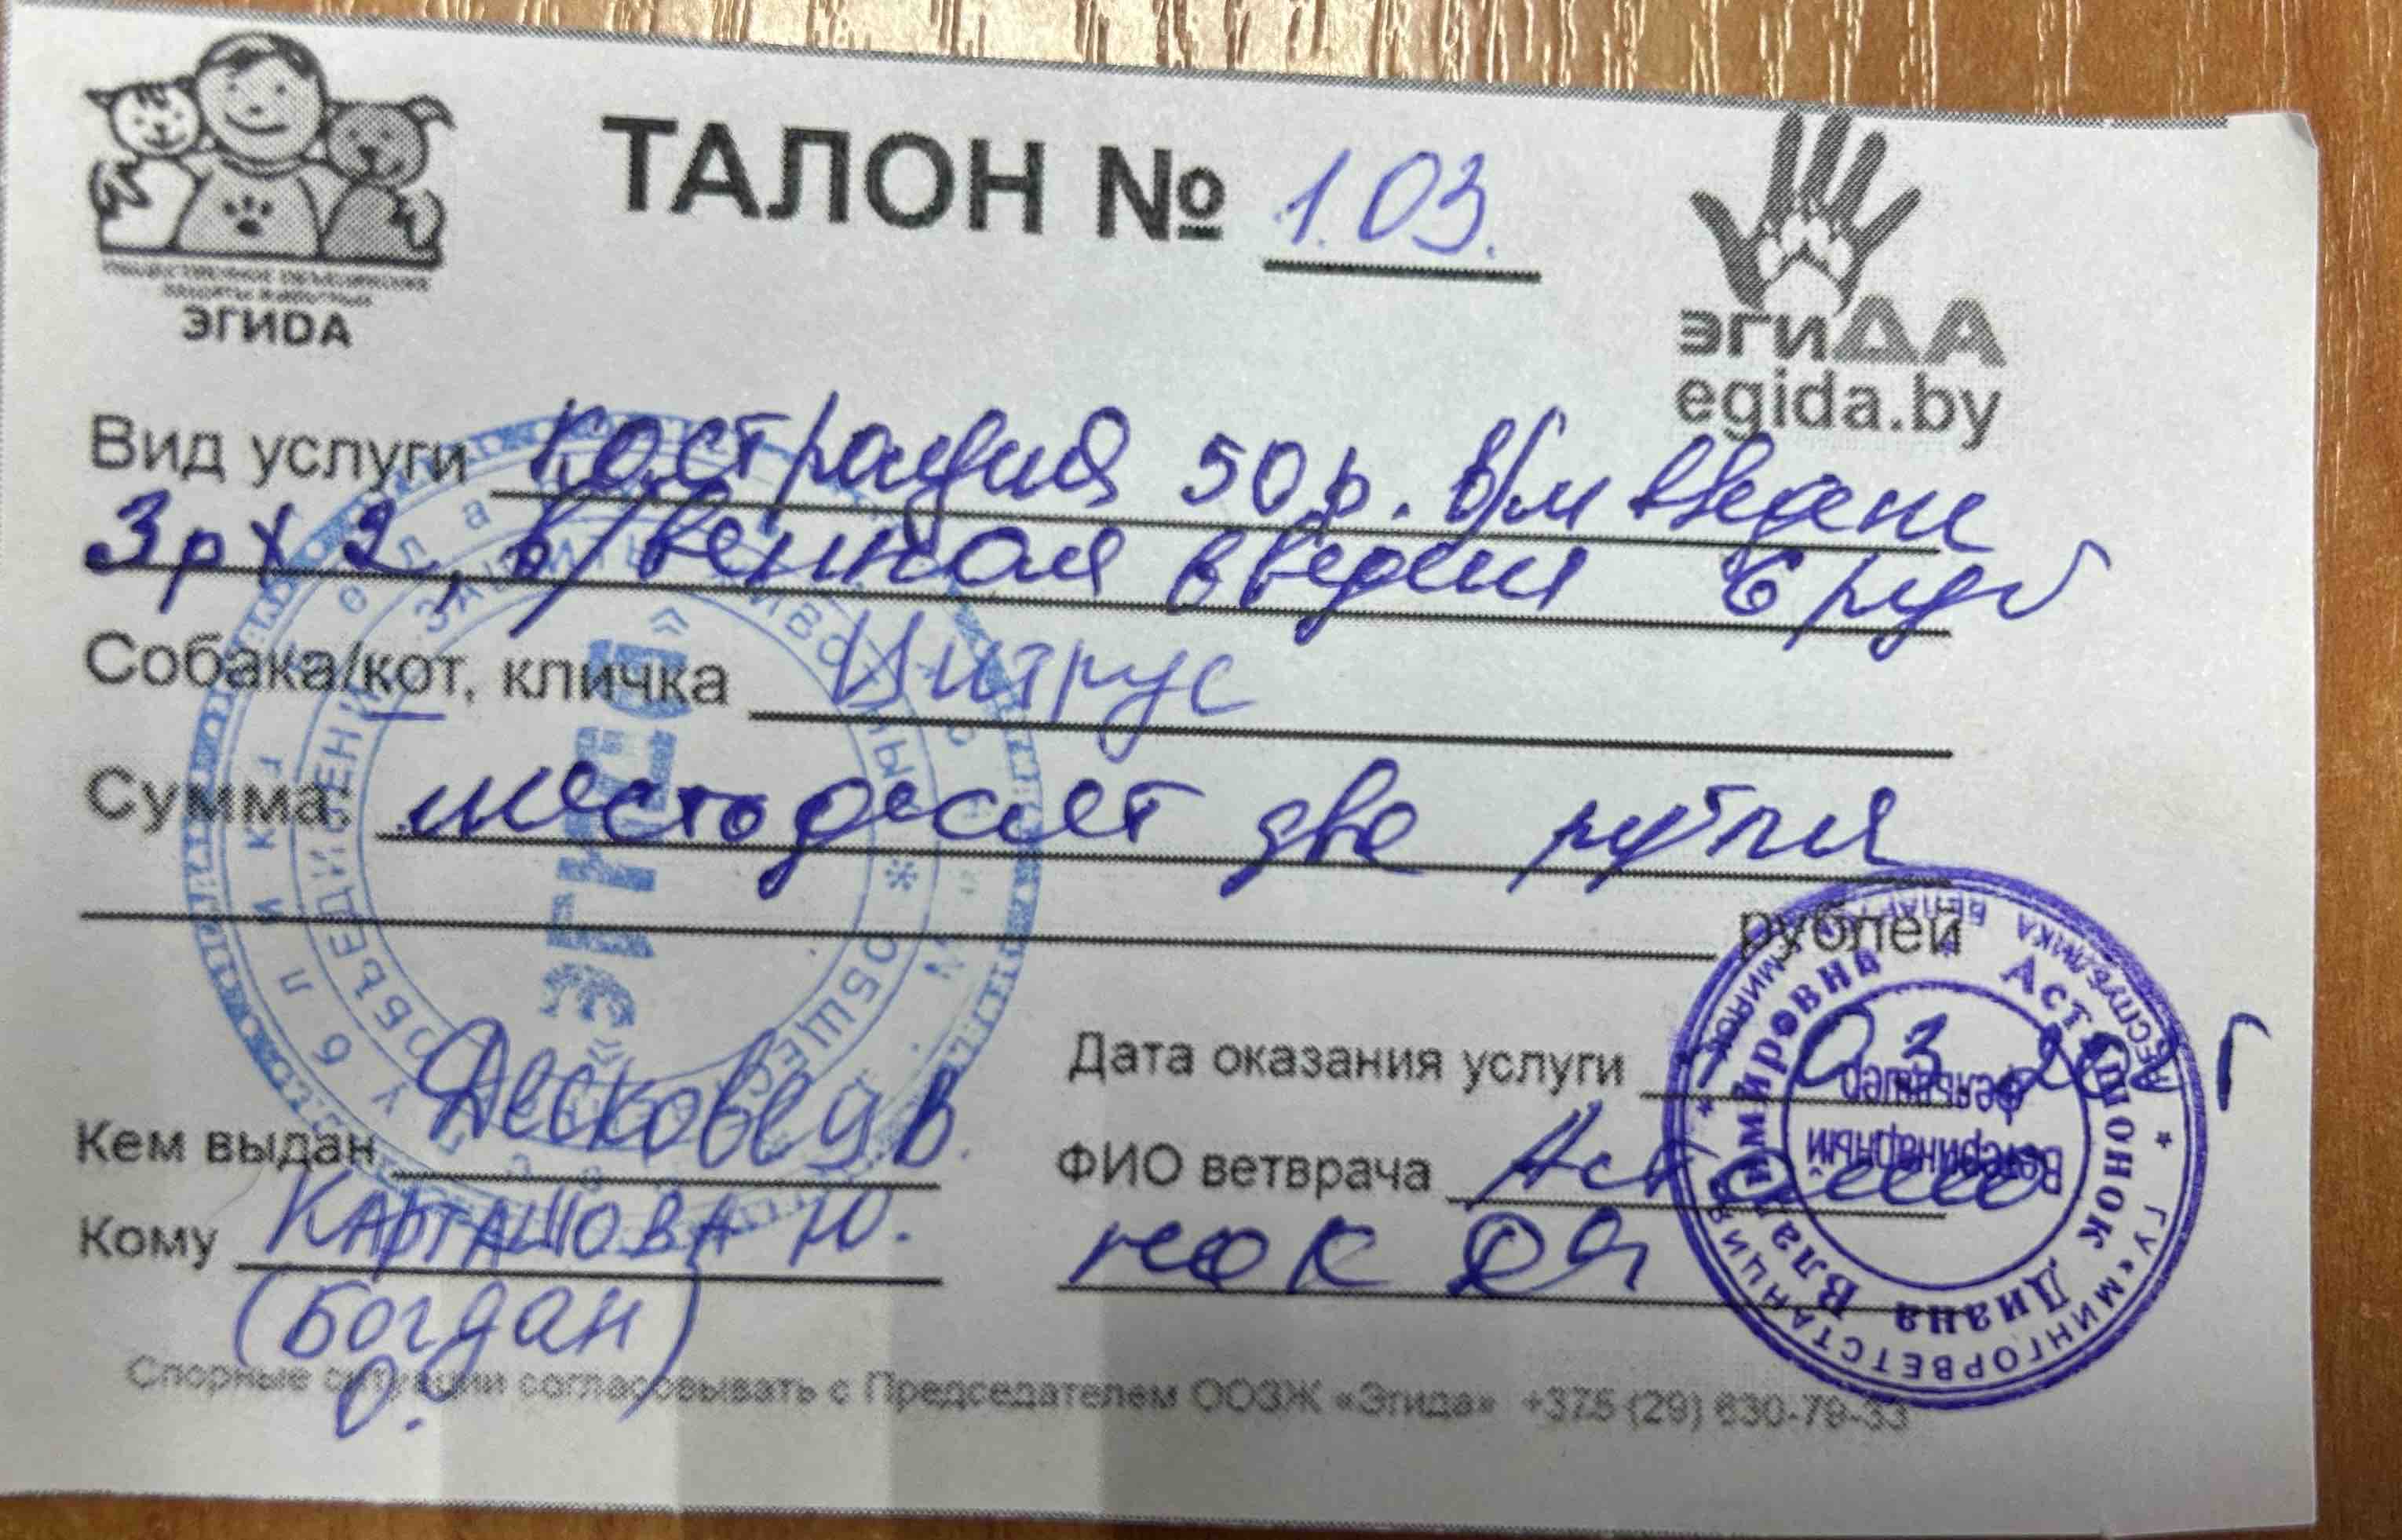 ТАЛОН № 1.03.
ОБЩЕСТВЕННОЕ ОБЪЕДИНЕНИЕ
ЗАЩИТЫ ЖИВОТНЫХ
ЭГИDА
эгиДА
egida.by
Вид услуги кастрация 50 р. в/м введение
3 р х 2, в/венная введения 6 руб
Собака/кот, кличка Цитрус
Сумма: шестьдесят две рубля
рублей
Кем выдан Десковец В.
Дата оказания услуги 03
Кому КАРТАШОВА Ю.
(Богдан)
О.
ФИО ветврача
Спорные ситуации согласовывать с Председателем ООЗЖ «Эгида» +375 (29) 630-79-33
«ЭГИДА»
* ГУ «МИНГОРВЕТСТАНЦИЯ»
Астапонок Диана Владимировна
Ветеринарный
фельдшер